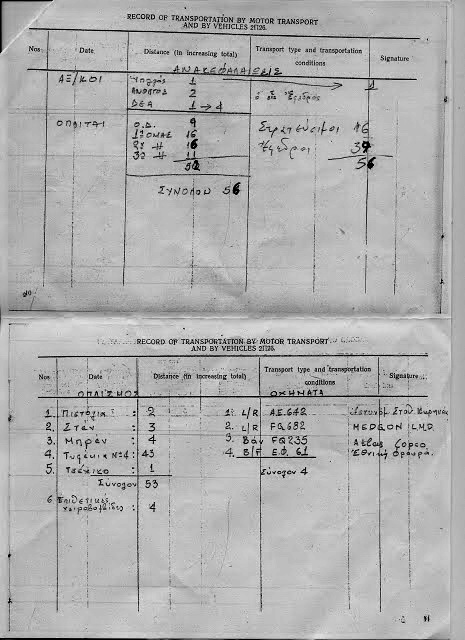 RECORD OF TRANSPORTATION BY MOTOR TRANSPORT
AND BY VEHICLES 21126.
Nos Date Distance (in increasing total) Transport type and transportation conditions Signature
ΑΝΑΚΕΦΑΛΑΙΩΣΙΣ
ΑΞ/ΚΟΙ 1 1
ΑΝΘΛΓΟΣ 2
ΔΕΑ 1 → 4
ΟΠΛΙΤΑΙ Ο.Δ. 9
1η ΟΜΑΣ 16 Στρατεύσιμοι 16
2α " 16 Έφεδροι 39
3η " 11 56
52
ΣΥΝΟΛΟΝ 56
RECORD OF TRANSPORTATION BY MOTOR TRANSPORT
AND BY VEHICLES 21126.
Nos Date Distance (in increasing total) Transport type and transportation conditions Signature
ΟΠΛΙΣΜΟΣ ΟΧΗΜΑΤΑ
1. Πιστόλια : 2 1. L/R ΑΕ.642
2. Στεν : 3 2. L/R FQ682 MEDCON L.M.D.
3. Μπρεν : 4 3. Βαν FQ235
4. Τυφέκια Νο4 : 43 4. B/F Ε.Φ. 61 Εθνική φρουρά.
5. Τσέχικο : 1 Σύνολον 4
Σύνολον 53
6 Επιθετικές χειροβομβίδες : 4